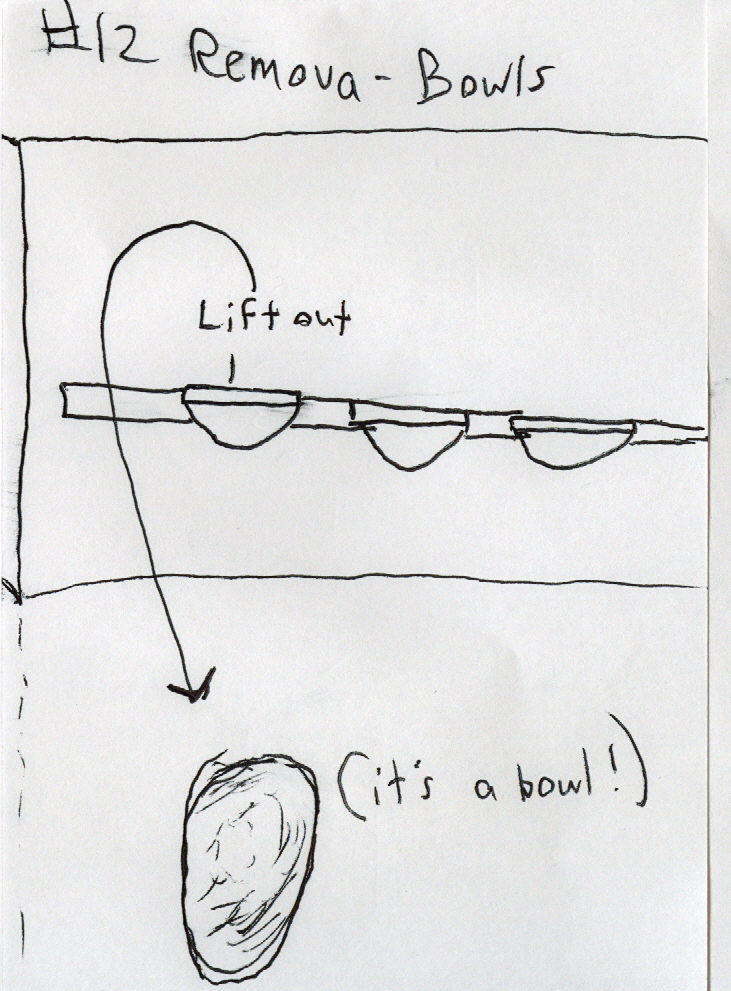 #12 Remova-Bowls
Lift out
(it's a bowl!)